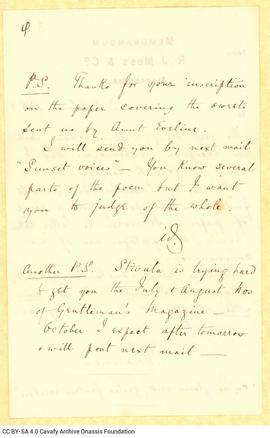 4
P.S. Thanks for your inscription
on the paper covering the sweets
sent us by Aunt Eveline.
I will send you by next mail
"Sunset voices" — You know several
parts of the poem but I want
you to judge of the whole.
id.
Another P.S. Stivala is trying hard
to get you the July & August Nos
of Gentleman's Magazine —
October I expect after tomorrow
& will post next mail —
MEMORANDUM
R. J. Moss & Co.
CC BY-SA 4.0 Cavafy Archive Onassis Foundation